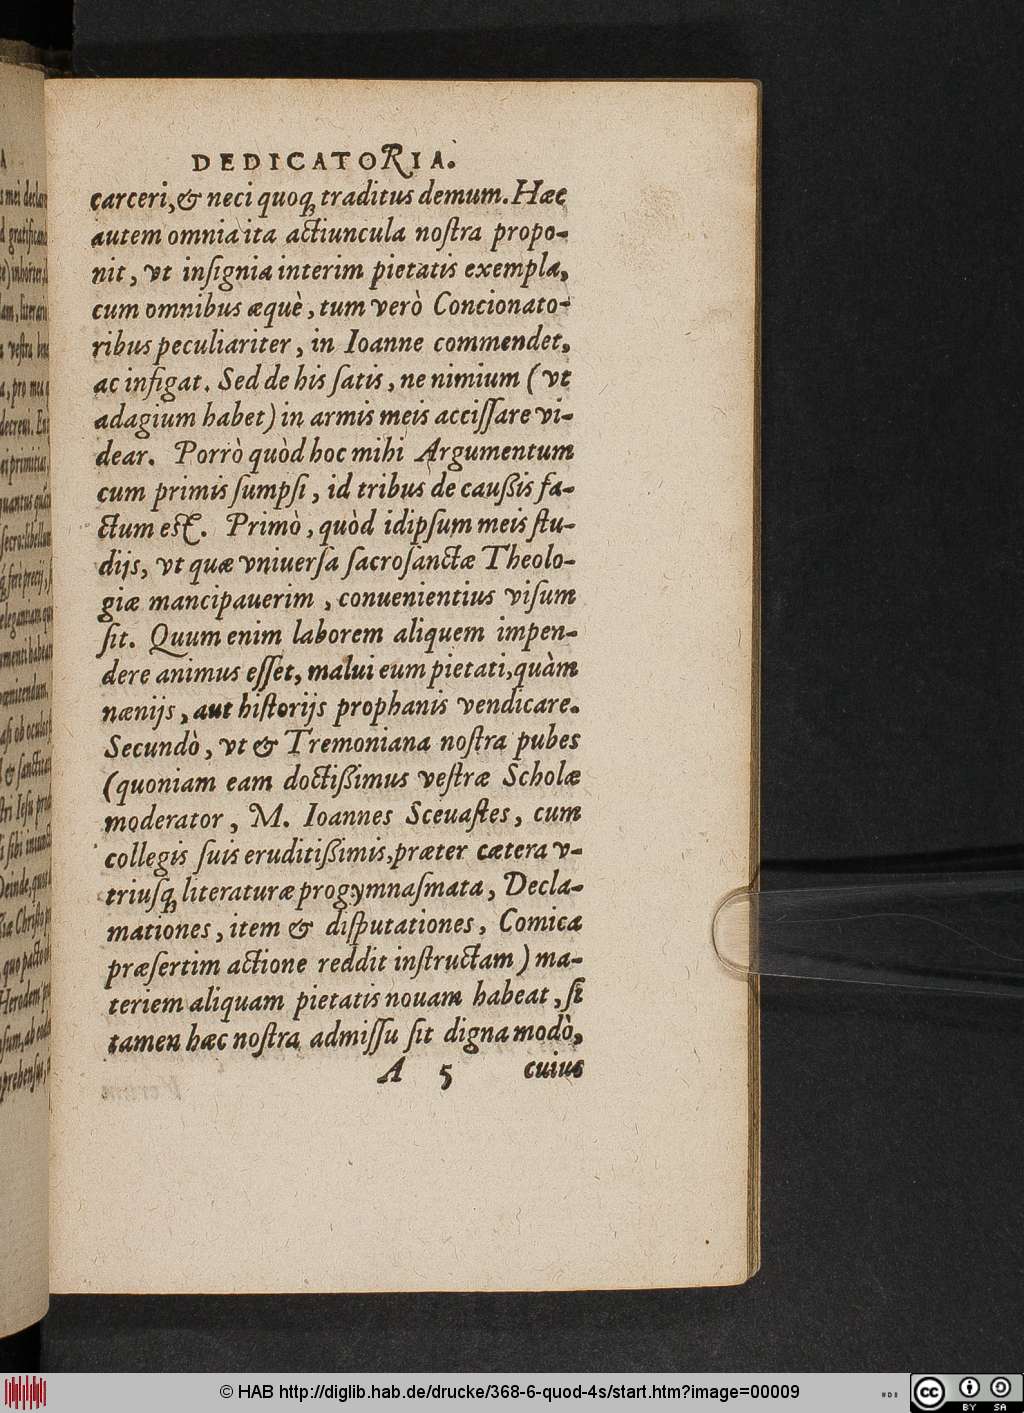 DEDICATORIA.
carceri, & neci quoq; traditus demum. Hæc
autem omnia ita actiuncula noſtra propo-
nit, vt inſignia interim pietatis exempla,
cum omnibus æquè, tum verò Concionato-
ribus peculiariter, in Ioanne commendet,
ac infigat. Sed de his ſatis, ne nimium (vt
adagium habet) in armis meis acciſſare vi-
dear. Porrò quòd hoc mihi Argumentum
cum primis ſumpſi, id tribus de caußis fa-
ctum est. Primò, quòd idipſum meis ſtu-
dijs, vt quæ vniuerſa ſacroſanctæ Theolo-
giæ mancipauerim, conuenientius viſum
ſit. Quum enim laborem aliquem impen-
dere animus eſſet, malui eum pietati, quàm
nænijs, aut hiſtorijs prophanis vendicare.
Secundò, vt & Tremoniana noſtra pubes
(quoniam eam doctißimus veſtræ Scholæ
moderator, M. Ioannes Sceuaſtes, cum
collegis ſuis eruditißimis, præter cætera v-
triuſq; literaturæ progymnaſmata, Decla-
mationes, item & diſputationes, Comica
præſertim actione reddit inſtructam) ma-
teriem aliquam pietatis nouam habeat, ſi
tamen hæc noſtra admiſſu ſit digna modò,
A 5 cuius
© HAB http://diglib.hab.de/drucke/368-6-quod-4s/start.htm?image=00009
cc BY SA